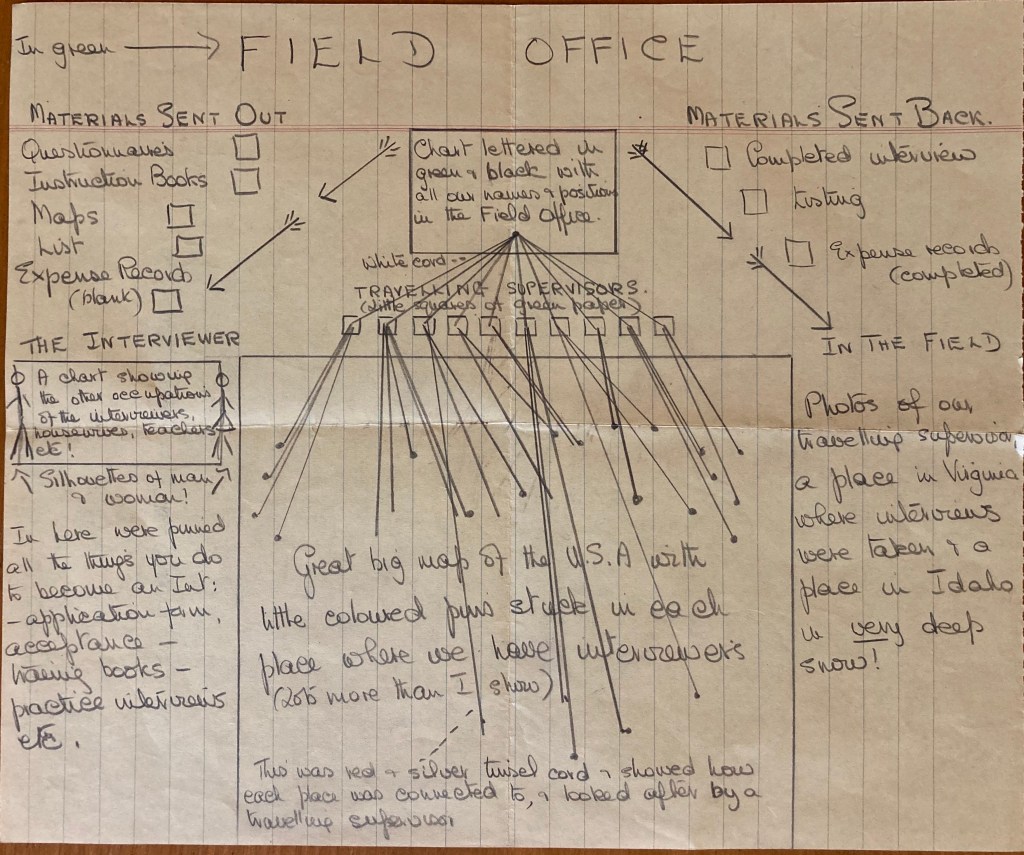 In green
FIELD OFFICE
MATERIALS SENT OUT
Questionnaires
Instruction Books
Maps
List
Expense Records
(blank)
Chart lettered in
green & black with
all our names & position
in the Field Office.
MATERIALS SENT BACK.
Completed interview
Listing
Expense records
(completed)
White cord --
TRAVELLING SUPERVISORS.
(little squares of green paper)
THE INTERVIEWER
A chart showing
the other occupations
of the interviewers,
housewives, teachers
etc!
Silhouettes of man
& woman!
In here were pinned
all the things you do
to become an Int:
- application form,
acceptance -
training books -
practice interviews
etc.
IN THE FIELD
Photos of our
travelling supervisor,
a place in Virginia
where interviews
were taken & a
place in Idaho
in very deep
snow!
Great big map of the U.S.A with
little coloured pins stuck in each
place where we have interviewers
(lots more than I show)
This was red & silver tinsel cord & showed how
each place was connected to, & looked after by a
travelling supervisor